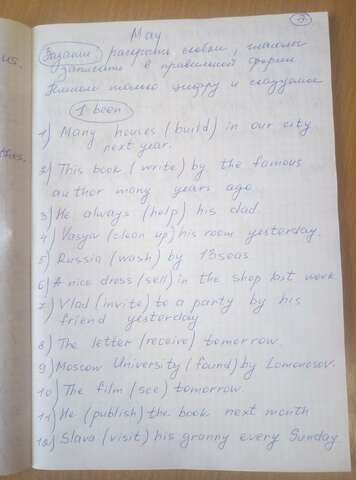 2
May
Задание раскрыть скобки, глаголы
записать в правильной форме
только цифру и сказуемое
1 been
1) Many houses (build) in our city
next year.
2) This book (write) by the famous
author many years ago
3) He always (help) his dad.
4) Vasyiv (clean up) his room yesterday.
5) Russia (wash) by 13seas
6) A nice dress (sell) in the shop last week
7) Vlad (invite) to a party by his
friend yesterday
8) The letter (receive) tomorrow.
9) Moscow University (found) by Lomonosov.
10) The film (see) tomorrow
11) He (publish) the book next month
12) Slava (visit) his granny every Sunday
us.